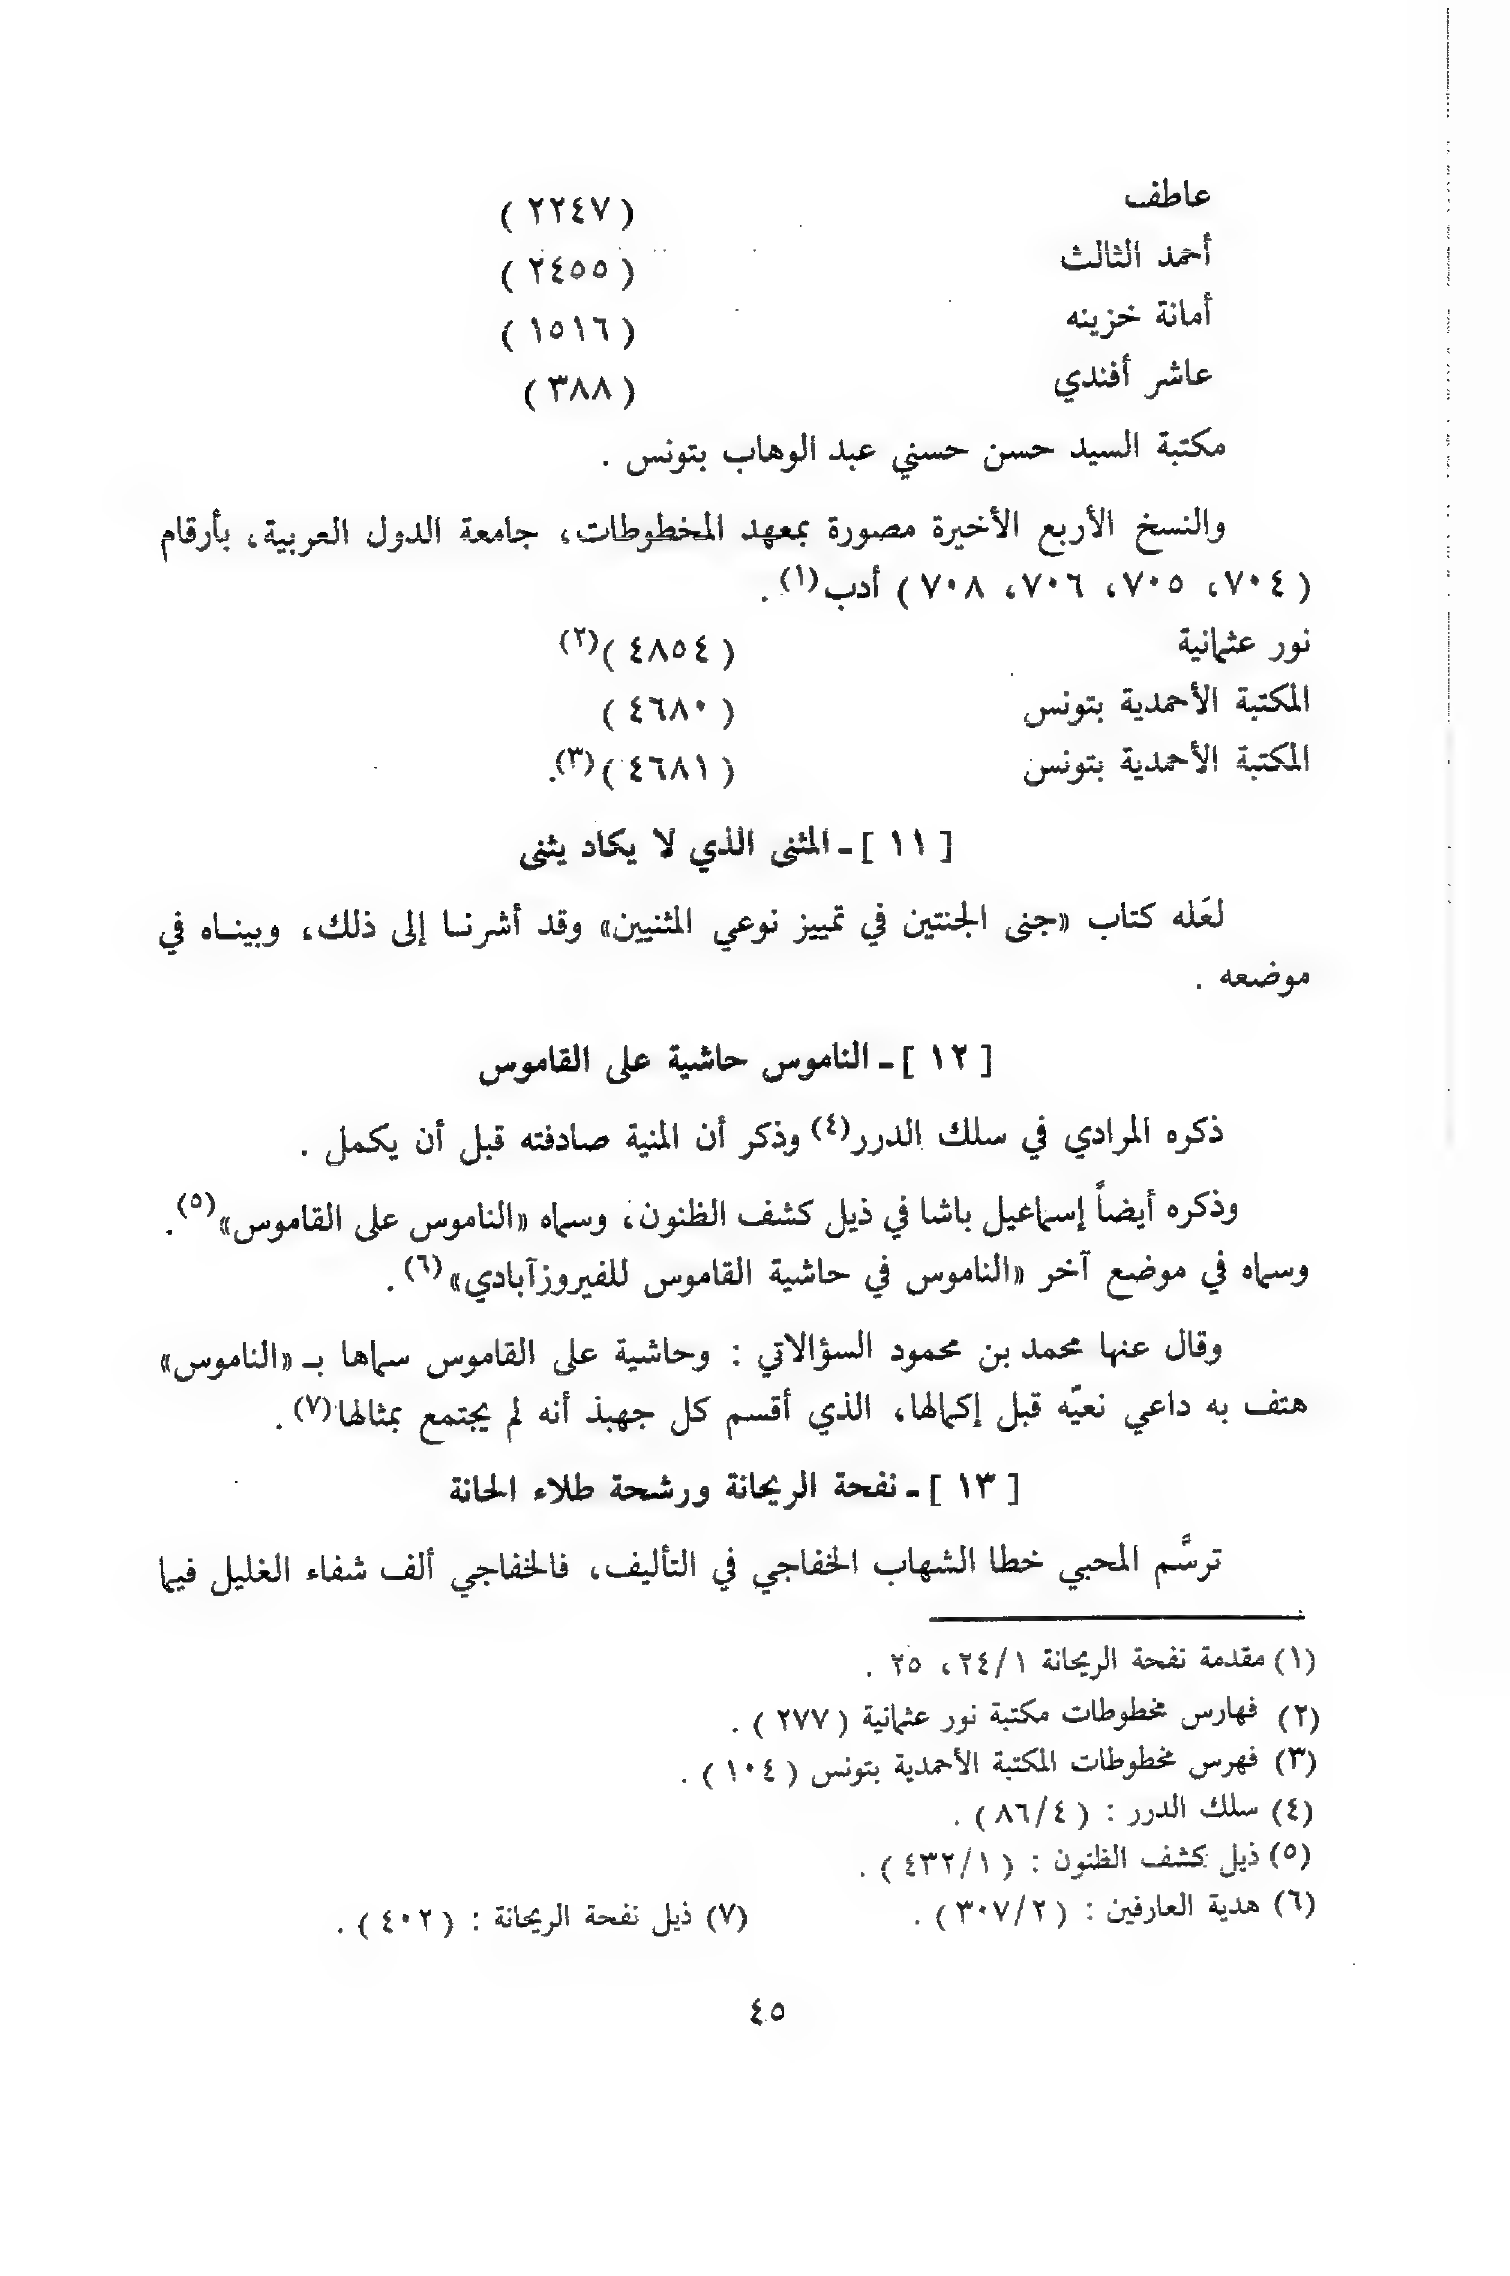 عاطف ( ٢٢٤٧ )
أحمد الثالث ( ٢٤٥٥ )
أمانة خزينه ( ١٥١٦ )
عاشر أفندي ( ٣٨٨ )
مكتبة السيد حسن حسني عبد الوهاب بتونس .
والنسخ الأربع الأخيرة مصورة بمعهد المخطوطات، جامعة الدول العربية، بأرقام
( ٧٠٤، ٧٠٥، ٧٠٦، ٧٠٨ ) أدب(١) .
نور عثمانية ( ٤٨٥٤ )(٢)
المكتبة الأحمدية بتونس ( ٤٦٨٠ )
المكتبة الأحمدية بتونس ( ٤٦٨١ )(٣).
[ ١١ ] ـ المثنى الذي لا يكاد يثنى
لعَله كتاب «جنى الجنتين في تمييز نوعي المثنيين» وقد أشرنا إلى ذلك، وبيناه في
موضعه .
[ ١٢ ] ـ الناموس حاشية على القاموس
ذكره المرادي في سلك الدرر(٤) وذكر أن المنية صادفته قبل أن يكمل .
وذكره أيضاً إسماعيل باشا في ذيل كشف الظنون، وسماه «الناموس على القاموس»(٥).
وسماه في موضع آخر «الناموس في حاشية القاموس للفيروزآبادي»(٦) .
وقال عنها محمد بن محمود السؤالاتي : وحاشية على القاموس سماها بـ «الناموس»
هتف به داعي نعيّه قبل إكمالها، الذي أقسم كل جهبذ أنه لم يجتمع بمثالها(٧) .
[ ١٣ ] ـ نفحة الريحانة ورشحة طلاء الحانة
ترسَّم المحبي خطا الشهاب الخفاجي في التأليف، فالخفاجي ألف شفاء الغليل فيما
(١) مقدمة نفحة الريحانة ٢٤/١، ٢٥ .
(٢) فهارس مخطوطات مكتبة نور عثمانية ( ٢٧٧ ) .
(٣) فهرس مخطوطات المكتبة الأحمدية بتونس ( ١٠٤ ) .
(٤) سلك الدرر : ( ٨٦/٤ ) .
(٥) ذيل كشف الظنون : ( ٤٣٢/١ ) .
(٦) هدية العارفين : ( ٣٠٧/٢ ) . (٧) ذيل نفحة الريحانة : ( ٤٠٢ ) .
٤٥